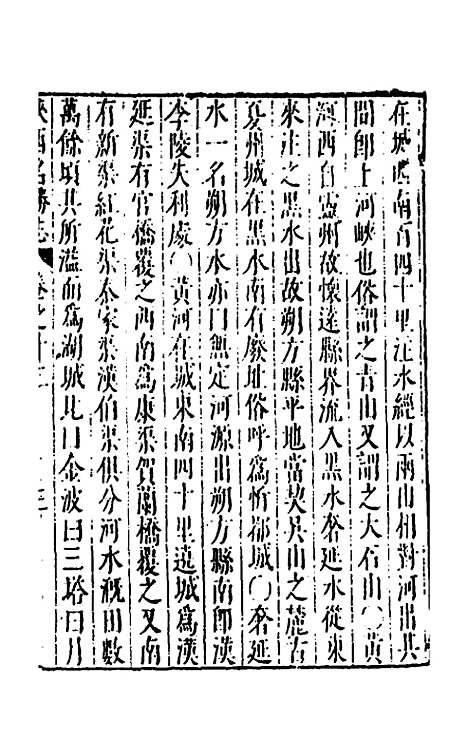 在城西南百四十里注水經以兩山相對河出其
間即上河峽也俗謂之青山又謂之大石山〇黃
河西自靈州故懷遠縣界流入黑水奢延水從東
來注之黑水出故朔方縣平地當契吳山之麓古
夏州城在黑水南有廢址俗呼爲忻都城〇奢延
水一名朔方水亦曰無定河源出朔方縣南即漢
李陵失利處〇黃河在城東南四十里遶城爲漢
延渠有官橋覆之西南爲康渠賀蘭橋覆之又南
有新渠紅花渠泰家渠漢伯渠俱分河水溉田數
萬餘頃其所溢而爲湖城北曰金波曰三塔曰月
陝西名勝志 卷之十三